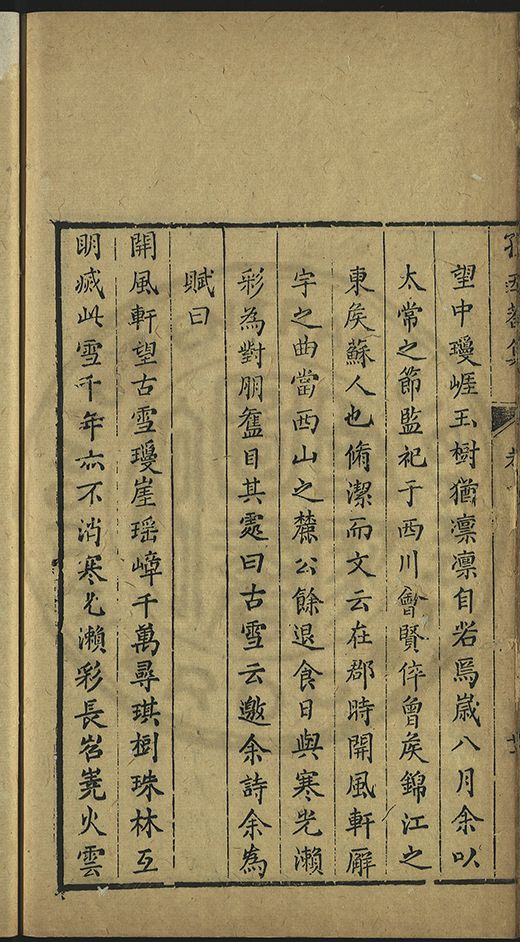 望中璦崕玉樹猶凛凛自若焉嵗八月余以
太常之節監祀于西川會賢倅曾矦錦江之
東矦蘇人也脩潔而文云在郡時開風軒廨
宇之曲當西山之麓公餘退食日與寒光瀬
彩為對朋舊目其䖏曰古雪云邀余詩余為
賦曰
開風軒望古雪璦崖瑶嶂千萬尋琪樹珠林互
明烕此雪千年亦不消寒光瀬彩長岧嶤火雲